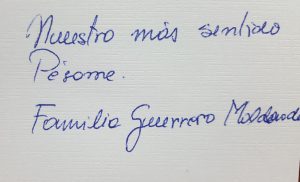 Nuestro más sentido
Pésame.
Familia Guerrero